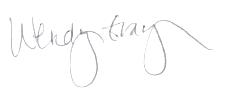 Wendy Gray